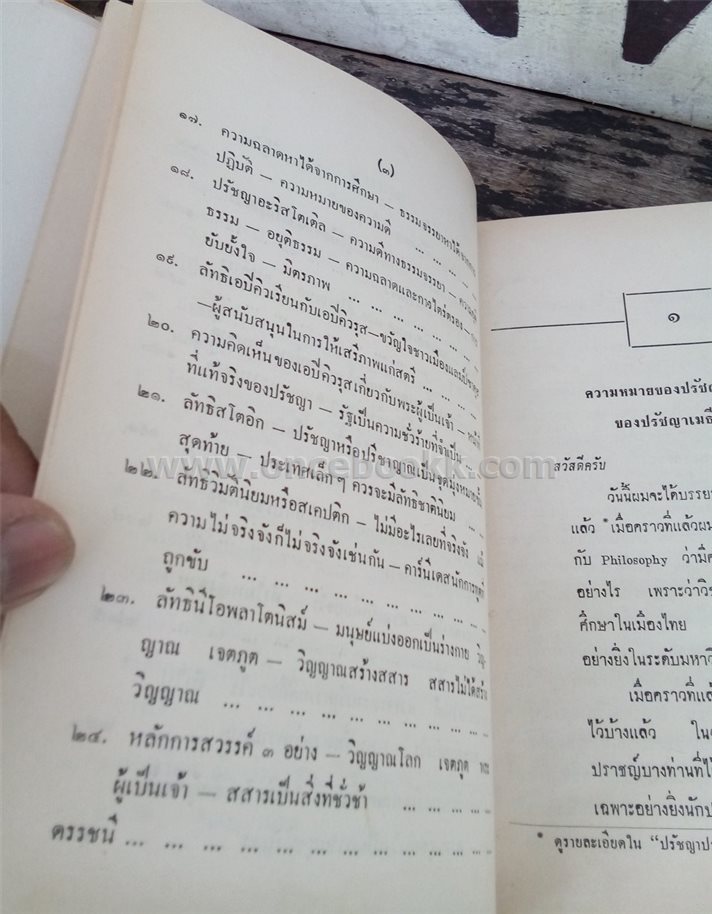 (๓)
๑๗. ความฉลาดหาได้จากการศึกษา — ธรรมจรรยาหาได้จากการ
ปฏิบัติ — ความหมายของความดี ... ... ... ...
๑๘. ปรัชญาอะริสโตเติล — ความดีทางธรรมจรรยา —
ธรรม — อยุติธรรม — ความฉลาดและการไตร่ตรอง — การ
ยับยั้งใจ — มิตรภาพ ... ... ... ... ... ...
๑๙. ลัทธิเอปิคิวเรียนกับเอปิคิวรุส—ขวัญใจชาวเมือง
—ผู้สนับสนุนในการให้เสรีภาพแก่สตรี ... ... ...
๒๐. ความคิดเห็นของเอปิคิวรุสเกี่ยวกับพระผู้เป็นเจ้า —
ที่แท้จริงของปรัชญา — รัฐเป็นความชั่วร้ายที่จำเป็น ...
๒๑. ลัทธิสโตอิก — ปรัชญาหรือปรีชาญาณเป็นจุดมุ่งหมายขั้น
สุดท้าย — ประเทศเล็ก ๆ ควรจะมีลัทธิชาตินิยม ... ...
๒๒. ลัทธิวิมตินิยมหรือสเคปติก — ไม่มีอะไรเลยที่จริงจัง แม้
ความไม่จริงจังก็ไม่จริงจังเช่นกัน — คาร์นีเดสนักการทูตที่
ถูกขับ ... ... ... ... ... ... ... ...
๒๓. ลัทธินีโอพลาโตนิสม์ — มนุษย์แบ่งออกเป็นร่างกาย วิญ-
ญาณ เจตภูต — วิญญาณสร้างสสาร สสารไม่ได้สร้าง
วิญญาณ ... ... ... ... ... ... ... ...
๒๔. หลักการสวรรค์ ๓ อย่าง — วิญญาณโลก เจตภูต พระ
ผู้เป็นเจ้า — สสารเป็นสิ่งที่ชั่วช้า ... ... ...
ดรรชนี ... ... ... ... ... ... ... ... ... ...
๑
ความหมายของปรัช
ของปรัชญาเมธี
สวัสดีครับ
วันนี้ผมจะได้บรรย
แล้ว * เมื่อคราวที่แล้วผม
กับ Philosophy ว่ามี
อย่างไร เพราะว่าวิช
ศึกษาในเมืองไทย
อย่างยิ่งในระดับมหาวิ
เมื่อคราวที่แล้
ไว้บ้างแล้ว ใน
ปราชญ์บางท่านที่ได้
เฉพาะอย่างยิ่งนักป
* ดูรายละเอียดใน "ปรัชญาป
www.oncebookk.com